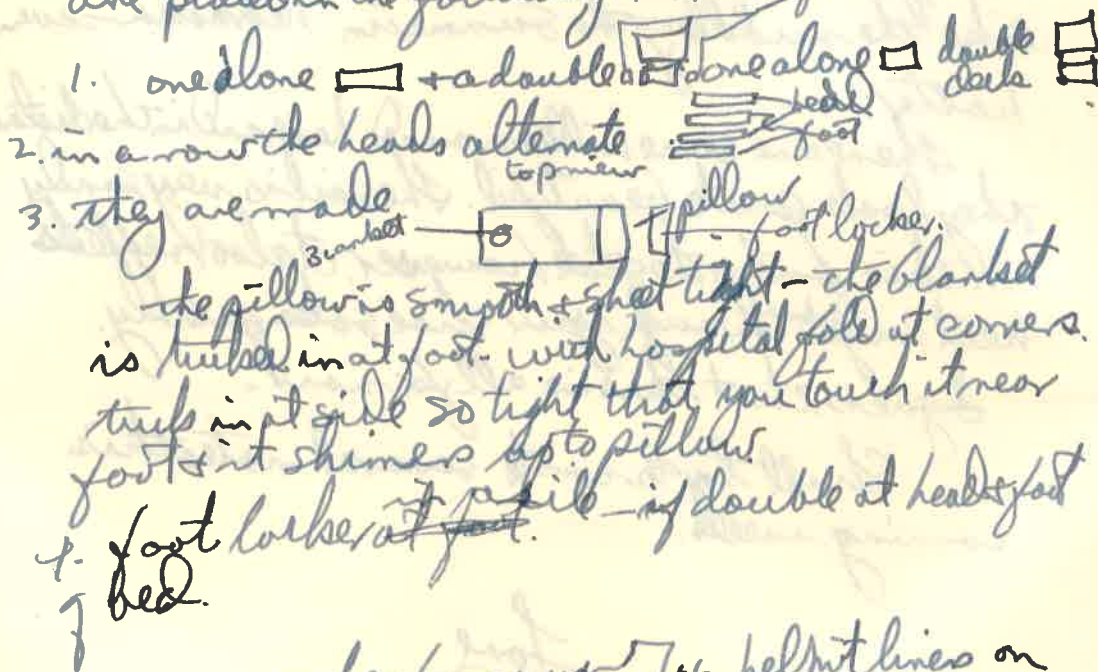 are placed in the following
1. one alone + a double one alone double deck
head
foot
2. in a row the heads alternate
top view
3. they are made
Blanket
pillow
foot locker.
the pillow is smooth & sheet tight - the blanket
is tucked in at foot - with hospital fold at corners.
tuck in at side so tight that you touch it near
foot & it shimers up to pillow.
4. foot locker at foot. if double at head & foot
of bed.
helmet liners on